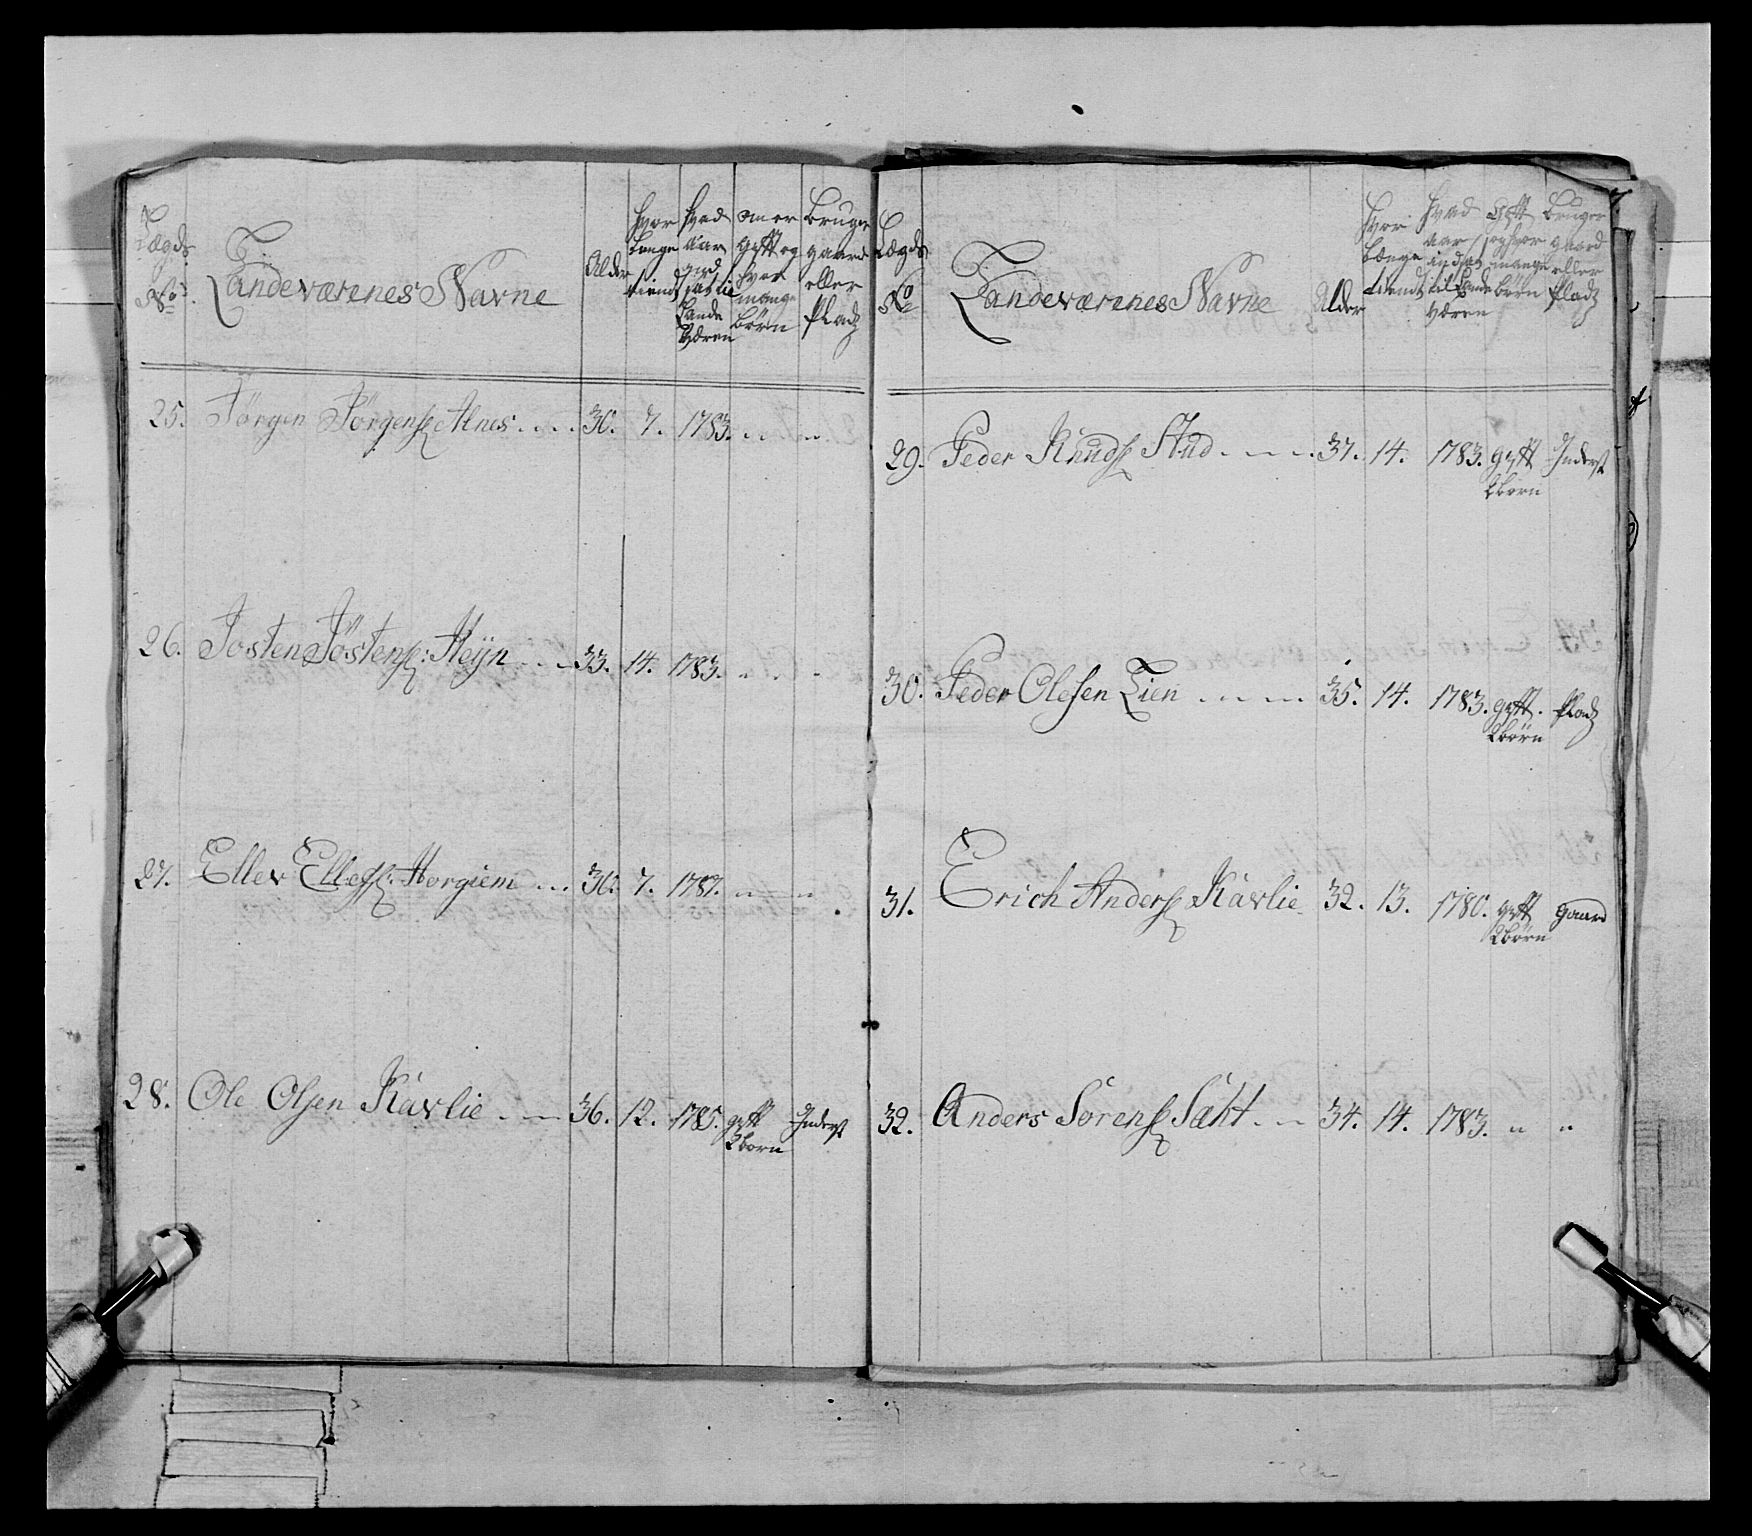 Lægds No.
Landeværenes Navne
Alder
hvor længe tiendt
hvad aar ind sat til Lande Væren
om er gift og hvor mange børn
bruger gaard eller Pladz
25. Jörgen Jörgens Alnes 30. 7. 1783. " "
26. Josten Jöstens: Heÿn 33. 14. 1783. " "
27. Ellev Ellefs: Horgiem 30. 7. 1787. " "
28. Ole Olsen Kavlie 36. 12. 1785. gift Inderst
2 born
Lægds No
Landeværenes Navne
Alder
hvor længe tiendt
hvad aar indsat til Lande Væren
Gift og hvor mange børn
bruger gaard eller Pladz
29. Peder Knuds Stud 37. 14. 1783. gift Inderst
2 born
30. Peder Olesen Lien 35. 14. 1783. gift. Pladz
2 børn
31. Erich Anders Kavlie 32. 13. 1780. gift Gaard
2 børn
32. Anders Sörens Sæht 34. 14. 1783. " "